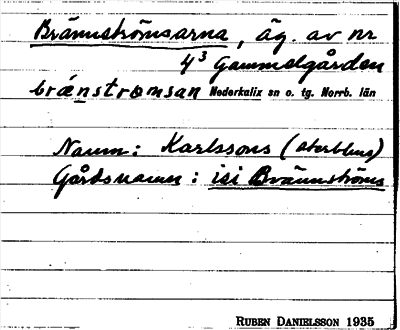 Brännströmsarna, äg. av nr
4³ Gammelgården
brä́nstromsan Nederkalix sn o. tg. Norrb. län
Namn: Karlssons (återblens)
Gårdsnamn: isi Brännströms
RUBEN DANIELSSON 1935